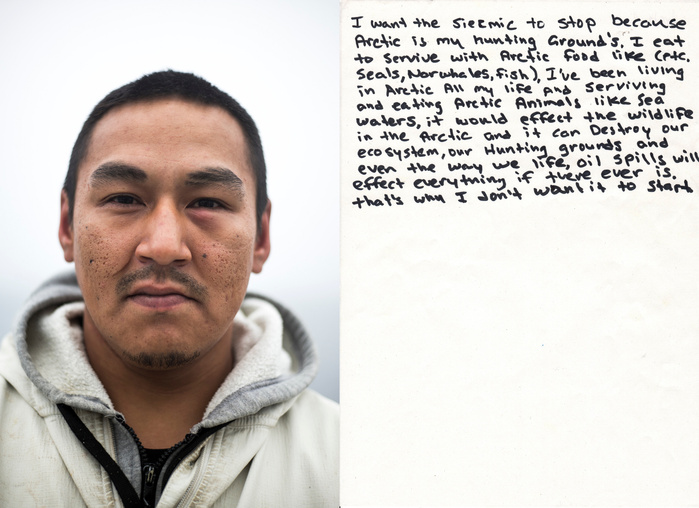 I want the siezmic to stop because
Arctic is my hunting Ground's. I eat
to servive with Arctic food like (etc.
Seals, Norwhales, fish), I've been living
in Arctic All my life and serviving
and eating Arctic Animals like Sea
waters, it would effect the wildlife
in the Arctic and it can Destroy our
ecosystem, our Hunting grounds and
even the way we life, oil spills will
effect everything if there ever is.
that's why I don't want it to start